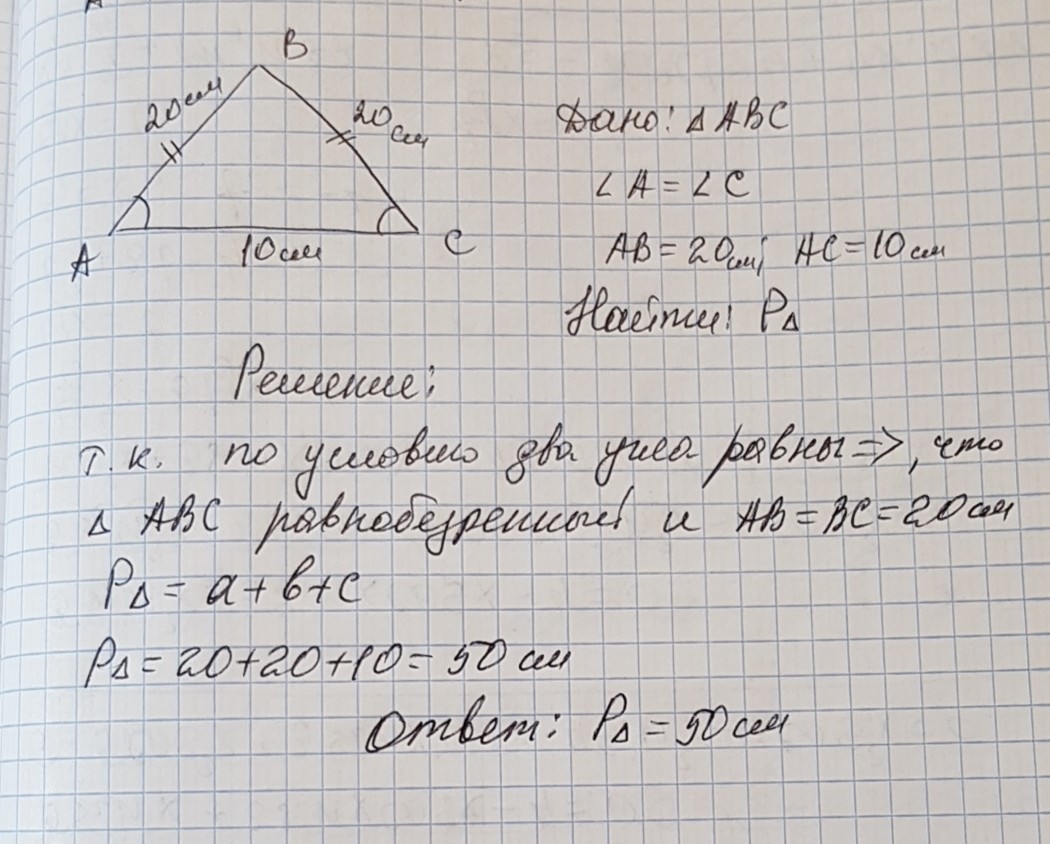 B
20см
20см
A
10см
C
Дано: ΔABC
∠A = ∠C
AB = 20см; AC = 10см
Найти: PΔ
Решение:
т.к. по условию два угла равны =>, что
Δ ABC равнобедренный и AB = BC = 20см
PΔ = a + b + c
PΔ = 20 + 20 + 10 = 50 см
Ответ: PΔ = 50см